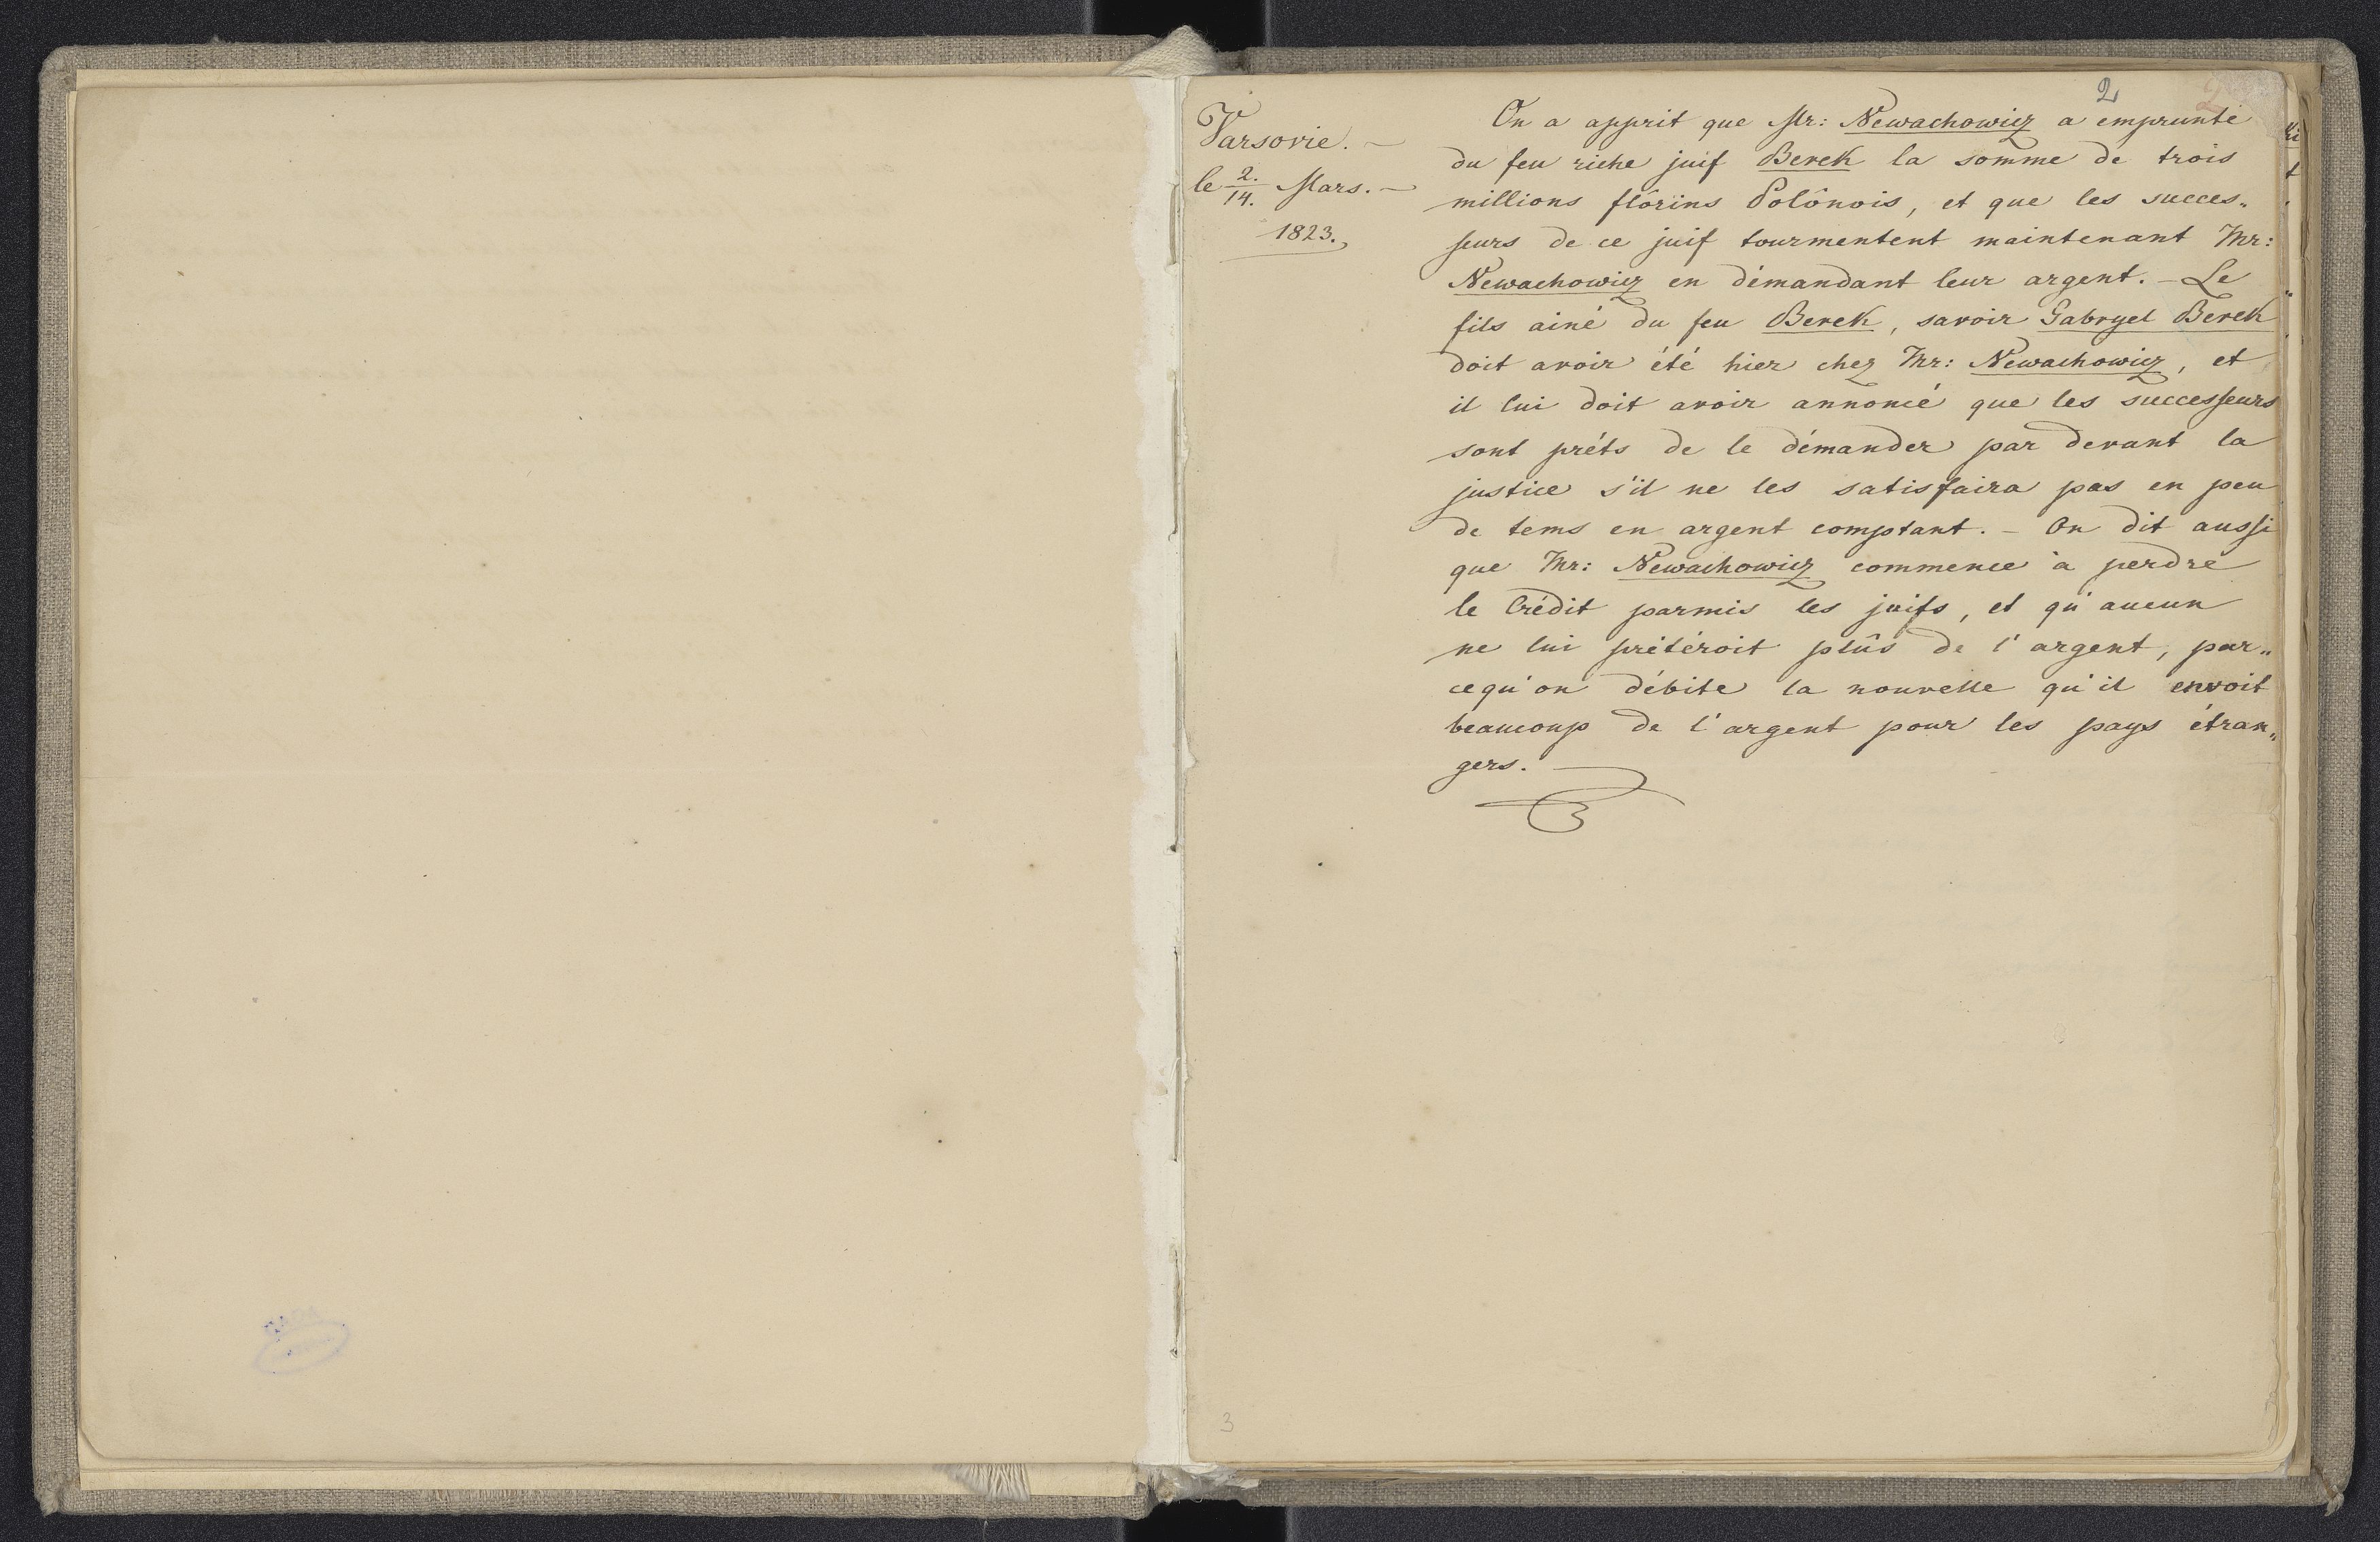 2 2
Varsovie. —
le 2./14. Mars. —
1823.,
On a apprit que Mr: Newachowicz a emprunté
du feu riche juif Berek la somme de trois
millions flôrins Polônois, et que les succes„
seurs de ce juif tourmentent maintenant Mr:
Newachowicz en démandant leur argent. — Le
fils ainé du feu Berek, savoir Gabryel Berek
doit avoir été hier chez Mr: Newachowicz, et
il lui doit avoir annoncé que les successeurs
sont préts de le démander par devant la
justice s'il ne les satisfaira pas en peu
de tems en argent comptant. — On dit aussi
que Mr: Newachowicz commence à perdre
le Crédit parmis les juifs, et qu'aucun
ne lui prétéroit plûs de l'argent, par„
cequ'on débite la nouvelle qu'il envoit
beaucoup de l'argent pour les pays étran„
gers.
3